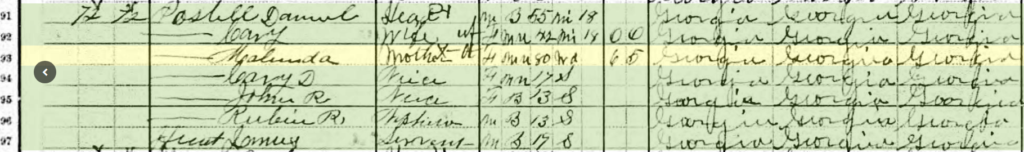 91 72 72 Postell Daniel Head m B 55 M1 18 Georgia Georgia Georgia
92 — Cary Wife F Mu M1 18 0 0 Georgia Georgia Georgia
93 — Malinda Mother F Mu 80 Wd 6 5 Georgia Georgia Georgia
94 — Cary D Neice F Mu 17 S Georgia Georgia Georgia
95 — John R Neice B 13 S Georgia Georgia Georgia
96 — Rubin R. m B 13 S Georgia Georgia Georgia
97 James Servant m B 17 S Georgia Georgia Georgia